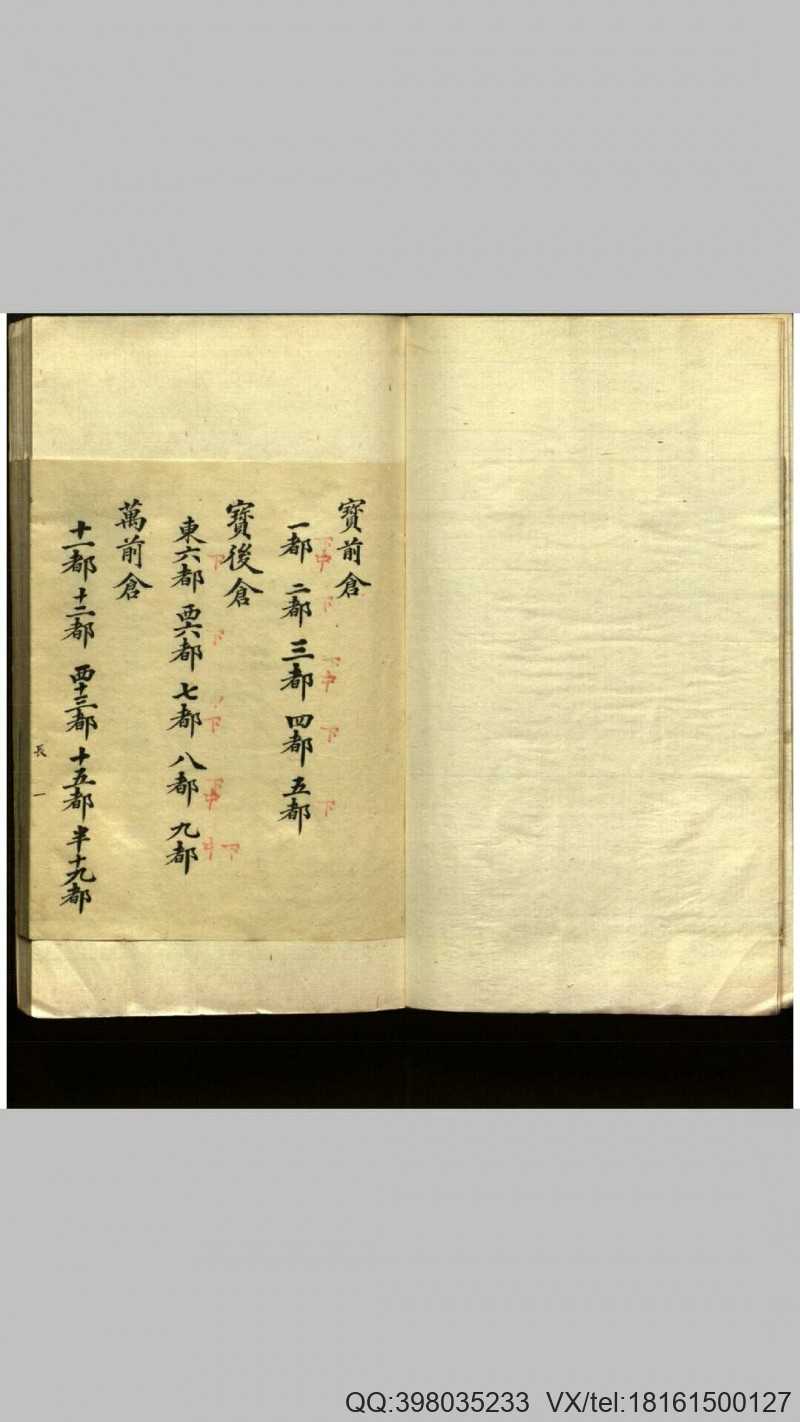 寳前倉
一都 二都 三都 四都 五都
寳後倉
東六都 西六都 七都 八都 九都
萬前倉
十一都 十二都 西十三都 十五都 半十九都
長 一
下中 下 下中 下 下
下 下 下 下中 下中
QQ:398035233 VX/tel:18161500127